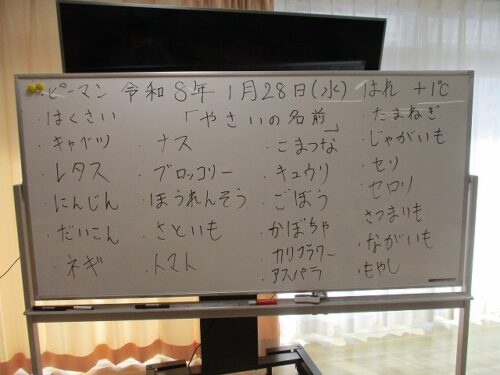 ・ピーマン 令和8年 1月28日(水) はれ +1℃
「やさいの名前」
・はくさい
・キャベツ
・レタス
・にんじん
・だいこん
・ネギ
・ナス
・ブロッコリー
・ほうれんそう
・さといも
・トマト
・こまつな
・キュウリ
・ごぼう
・かぼちゃ
・カリフラワー
・アスパラ
・たまねぎ
・じゃがいも
・セリ
・セロリ
・さつまいも
・ながいも
・もやし